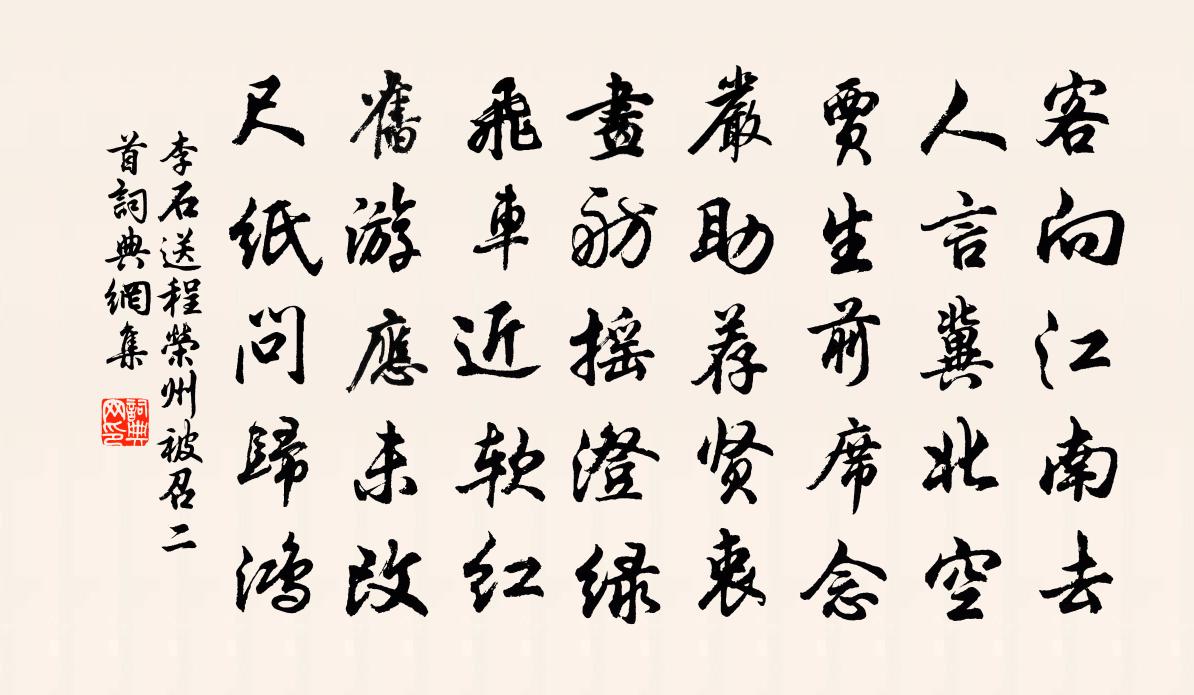 客向江南去
人言冀北空
賈生前席念
嚴助荐贤衷
畫舫摇澄绿
飛車近软红
舊游應未改
尺纸問歸鸿
李石送程榮州被召二
首詞典網集
詞典
网印